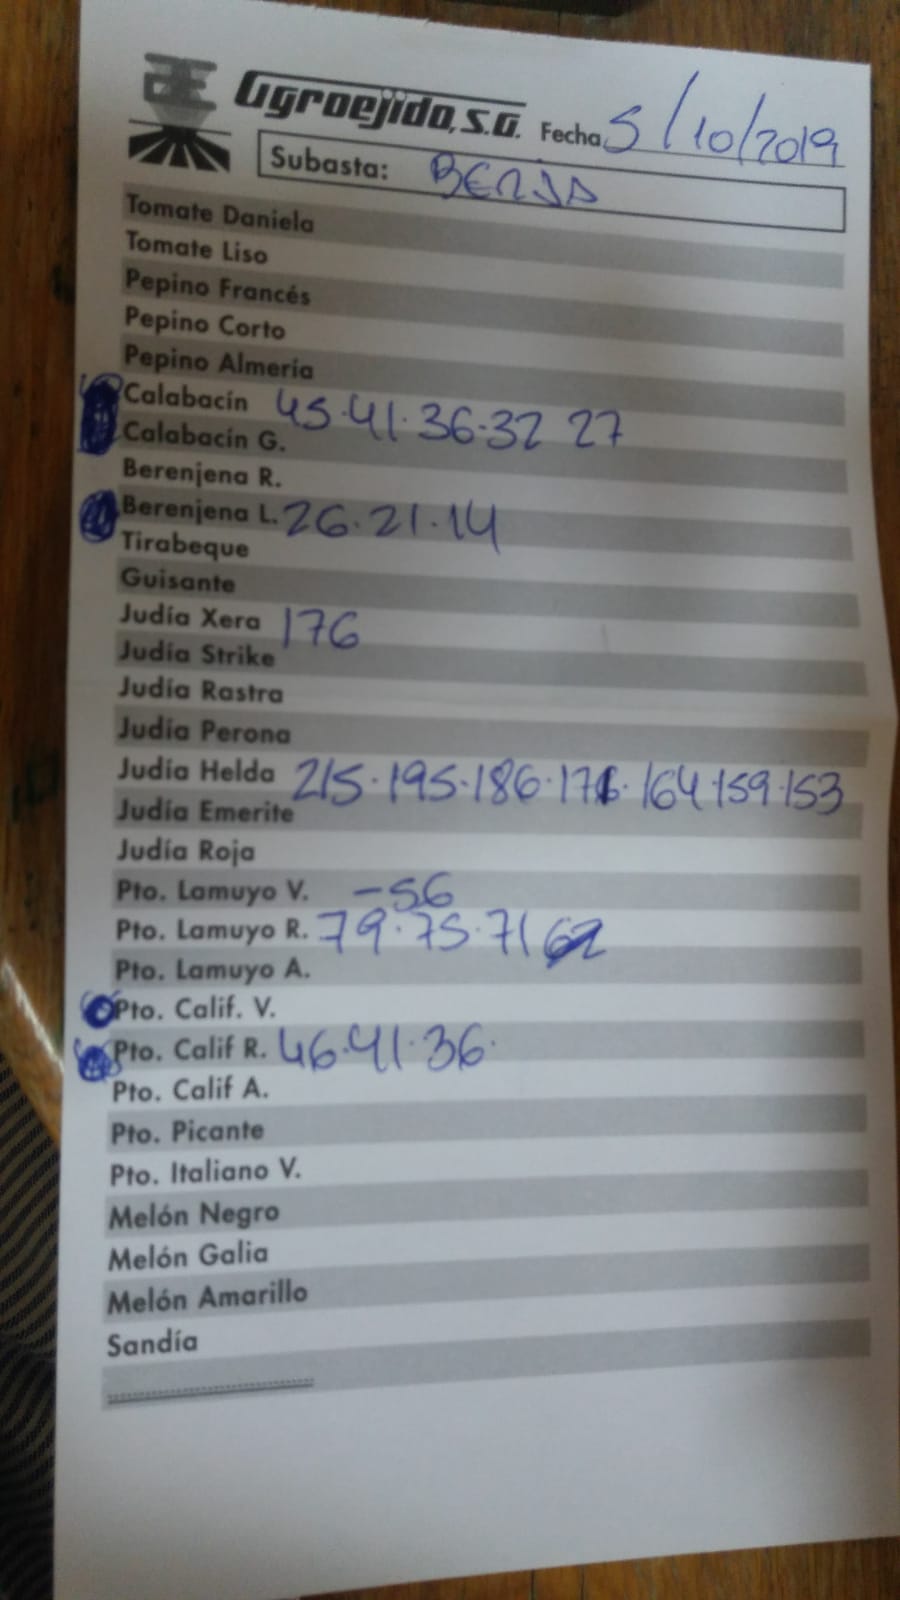 Agroejido, S.A. Fecha 5/10/2019
Subasta: BERJA
Tomate Daniela
Tomate Liso
Pepino Francés
Pepino Corto
Pepino Almería
Calabacín 45·41·36·32 27
Calabacín G.
Berenjena R.
Berenjena L. 26·21·14
Tirabeque
Guisante
Judía Xera 176
Judía Strike
Judía Rastra
Judía Perona
Judía Helda 215·195·186·176·164·159·153
Judía Emerite
Judía Roja
Pto. Lamuyo V. -56
Pto. Lamuyo R. 79·75·71 62
Pto. Lamuyo A.
Pto. Calif. V.
Pto. Calif R. 46·41·36·
Pto. Calif A.
Pto. Picante
Pto. Italiano V.
Melón Negro
Melón Galia
Melón Amarillo
Sandía